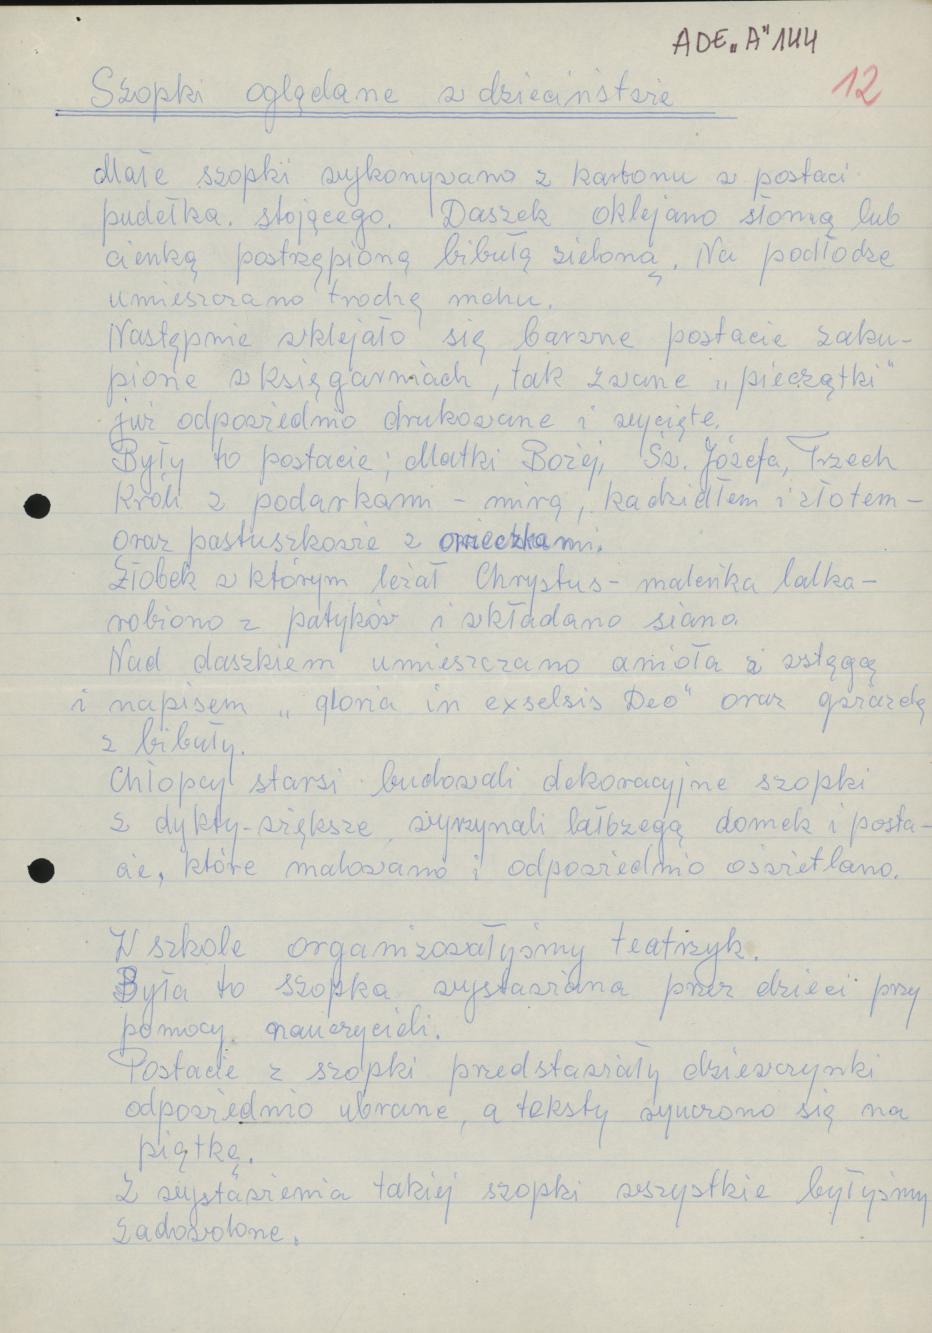 ADE„A"144
12
Szopki oglądane w dzieciństwie
Małe szopki wykonywano z kartonu w postaci
pudełka. stojącego. Daszek oklejano słomą lub
cienką postrzępioną bibułą zieloną. Na podłodze
umieszczano trochę mchu.
Następnie wklejało się barwne postacie zaku-
pione w księgarniach, tak zwane „pieczątki"
już odpowiednio drukowane i wycięte.
Były to postacie; Matki Bożej, Św. Józefa, Trzech
Króli z podarkami - mirą, kadzidłem i złotem -
oraz pastuszkowie z owieczkami.
Żłobek w którym leżał Chrystus - maleńka lalka -
robiono z patyków i wkładano siano.
Nad daszkiem umieszczano anioła z wstęgą
i napisem „gloria in exselsis Deo" oraz gwiazdę
z bibuły.
Chłopcy starsi budowali dekoracyjne szopki
z dykty - większe, wyrzynali laubzegą domek i posta-
cie, które malowano i odpowiednio oświetlano.
W szkole organizowałyśmy teatrzyk.
Była to szopka wystawiana przez dzieci przy
pomocy nauczycieli.
Postacie z szopki przedstawiały dziewczynki
odpowiednio ubrane, a teksty wyuczono się na
piątkę.
Z wystawienia takiej szopki wszystkie byłyśmy
zadowolone.